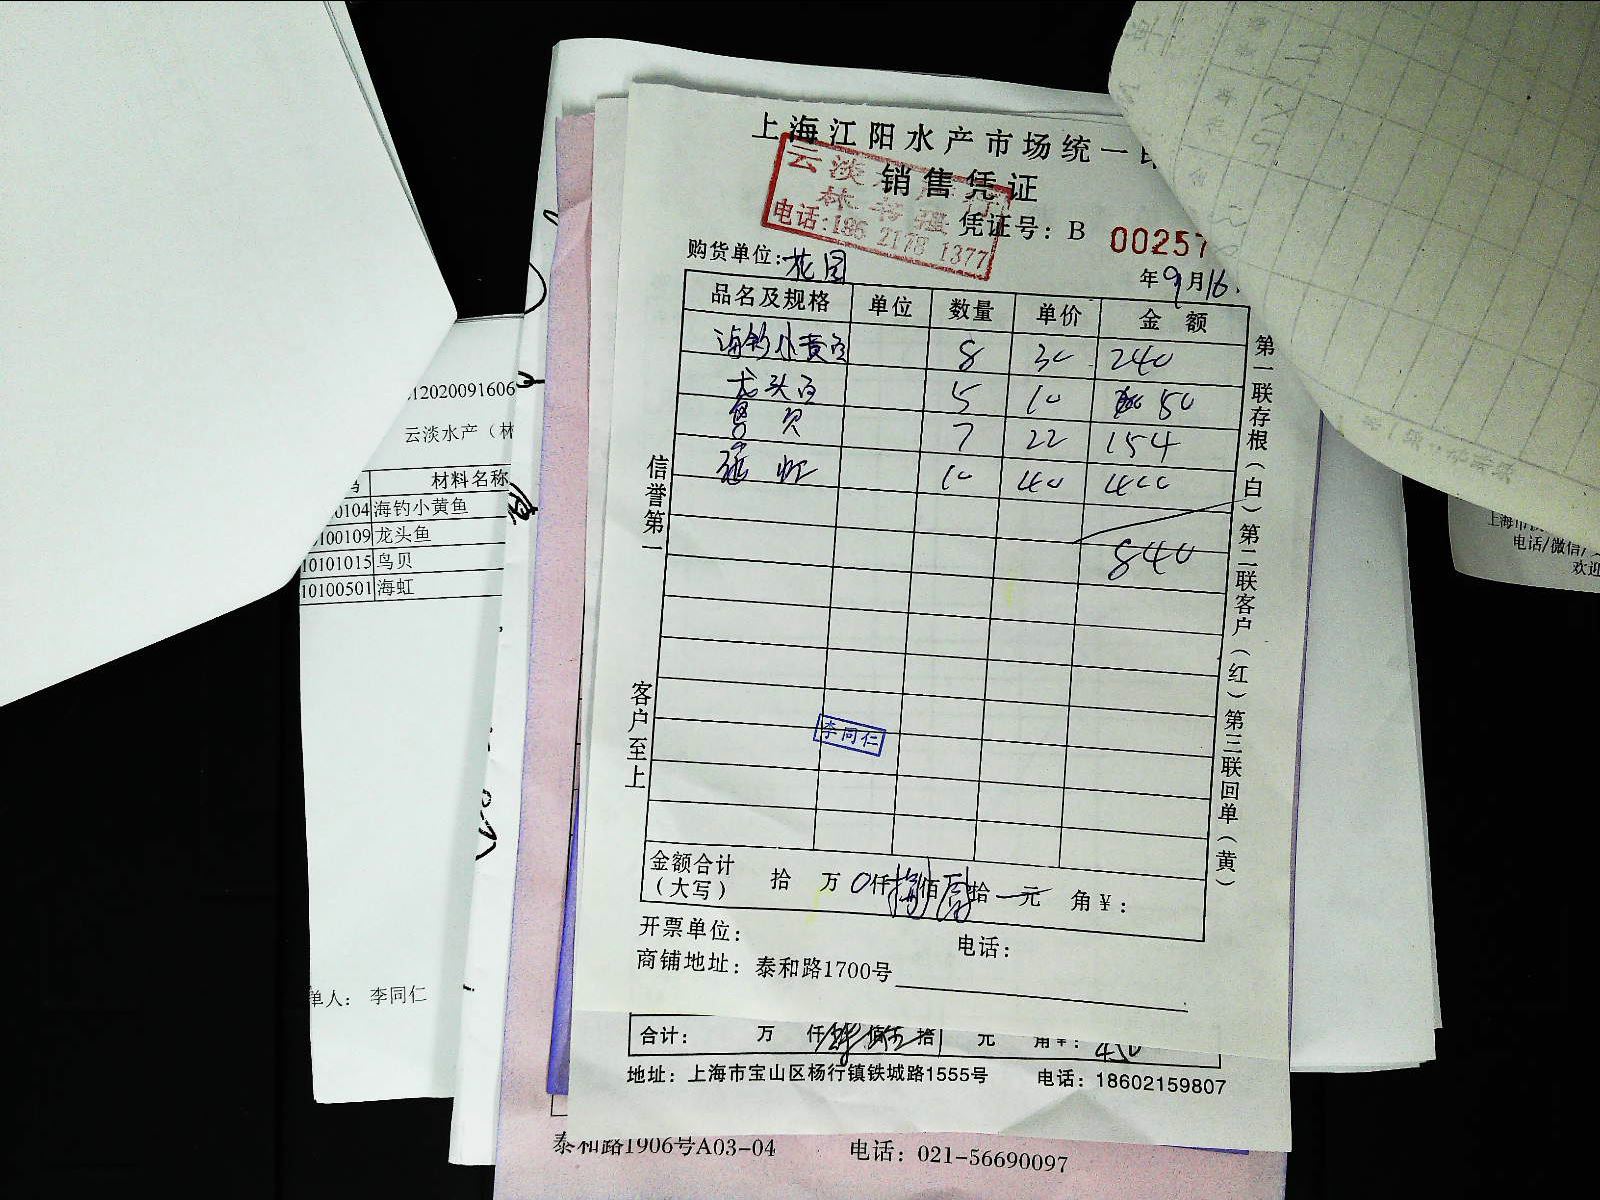 上海江阳水产市场统一
销售凭证
云淡水产行
林书强
电话:186 2178 1377
凭证号: B 00257
购货单位: 花园
年9月16.
品名及规格 单位 数量 单价 金 额
海钓小黄鱼 8 30 240
龙头鱼 5 10 50
鸟贝 7 22 154
海虹 10 40 400
840
李同仁
金额合计
(大写) 拾 万 0仟捌佰肆拾一元 角¥:
开票单位: 电话:
商铺地址: 泰和路1700号
信誉第一
客户至上
第一联存根(白)第二联客户(红)第三联回单(黄)
合计: 万 仟 佰 拾 元 角¥: 450
地址: 上海市宝山区杨行镇铁城路1555号 电话: 18602159807
泰和路1906号A03-04 电话: 021-56690097
12020091606
云淡水产(林
材料名称
0104 海钓小黄鱼
100109 龙头鱼
10101015 鸟贝
10100501 海虹
单人: 李同仁
上海市
电话/微信/
欢迎